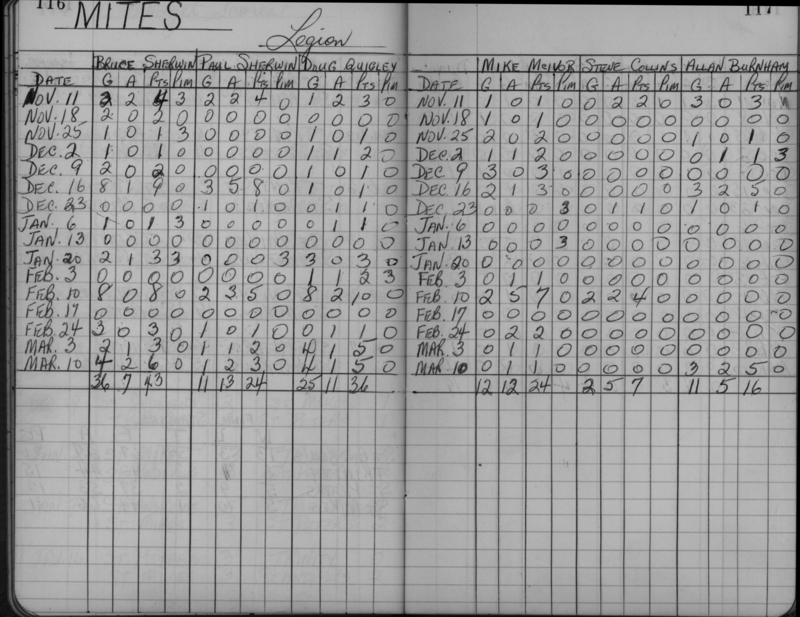 116
117
MITES
Legion
BRUCE SHERWIN PAUL SHERWIN DOUG QUIGLEY
DATE G A Pts Pim G A Pts Pim G A Pts Pim
NOV. 11 2 2 4 3 2 2 4 0 1 2 3 0
NOV. 18 2 0 2 0 0 0 0 0 0 0 0 0
NOV. 25 1 0 1 3 0 0 0 0 1 0 1 0
DEC. 2 1 0 1 0 0 0 0 0 1 1 2 0
DEC. 9 2 0 2 0 0 0 0 0 1 0 1 0
DEC. 16 8 1 9 0 3 5 8 0 1 0 1 0
DEC. 23 0 0 0 0 1 0 1 0 0 1 1 0
JAN. 6 1 0 1 3 0 0 0 0 0 1 1 0
JAN. 13 0 0 0 0 0 0 0 0 0 0 0 0
JAN. 20 2 1 3 3 0 0 0 3 3 0 3 0
FEB. 3 0 0 0 0 0 0 0 0 1 1 2 3
FEB. 10 8 0 8 0 2 3 5 0 8 2 10 0
FEB. 17 0 0 0 0 0 0 0 0 0 0 0 0
FEB. 24 3 0 3 0 1 0 1 0 0 1 1 0
MAR. 3 2 1 3 0 1 1 2 0 4 1 5 0
MAR. 10 4 2 6 0 1 2 3 0 4 1 5 0
36 7 43 11 13 24 25 11 36
MIKE McIVOR STEVE COLLINS ALLAN BURNHAM
DATE G A Pts Pim G A Pts Pim G A Pts Pim
NOV. 11 1 0 1 0 0 2 2 0 3 0 3
NOV. 18 1 0 1 0 0 0 0 0 0 0 0 0
NOV. 25 2 0 2 0 0 0 0 0 1 0 1 0
DEC. 2 1 1 2 0 0 0 0 0 0 1 1 3
DEC. 9 3 0 3 0 0 0 0 0 0 0 0 0
DEC. 16 2 1 3 0 0 0 0 0 3 2 5 0
DEC. 23 0 0 0 3 0 1 1 0 1 0 1 0
JAN. 6 0 0 0 0 0 0 0 0 0 0 0 0
JAN. 13 0 0 0 3 0 0 0 0 0 0 0 0
JAN. 20 0 0 0 0 0 0 0 0 0 0 0 0
FEB. 3 0 1 1 0 0 0 0 0 0 0 0 0
FEB. 10 2 5 7 0 2 2 4 0 0 0 0 0
FEB. 17 0 0 0 0 0 0 0 0 0 0 0 0
FEB. 24 0 2 2 0 0 0 0 0 0 0 0 0
MAR. 3 0 1 1 0 0 0 0 0 0 0 0 0
MAR. 10 0 1 1 0 0 0 0 0 3 2 5 0
12 12 24 2 5 7 11 5 16